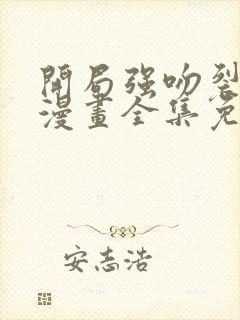 開局強吻裂
漫畫全集免
安志浩